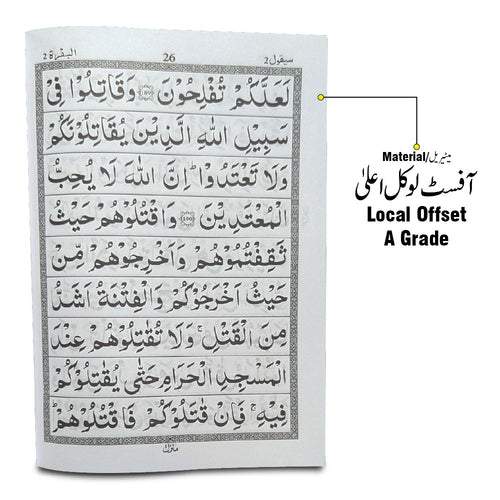 البقرة ٢
26
سيقول ٢
لَعَلَّكُمْ تُفْلِحُوْنَ ﴿189﴾ وَقَاتِلُوْا فِيْ
سَبِيْلِ اللّٰهِ الَّذِيْنَ يُقَاتِلُوْنَكُمْ
وَلَا تَعْتَدُوْا ؕ اِنَّ اللّٰهَ لَا يُحِبُّ
الْمُعْتَدِيْنَ ﴿190﴾ وَاقْتُلُوْهُمْ حَيْثُ
ثَقِفْتُمُوْهُمْ وَاَخْرِجُوْهُمْ مِّنْ
حَيْثُ اَخْرَجُوْكُمْ وَالْفِتْنَةُ اَشَدُّ
مِنَ الْقَتْلِ ۚ وَلَا تُقٰتِلُوْهُمْ عِنْدَ
الْمَسْجِدِ الْحَرَامِ حَتّٰى يُقٰتِلُوْكُمْ
فِيْهِ ۚ فَاِنْ قٰتَلُوْكُمْ فَاقْتُلُوْهُمْ ؕ
منزل
Material/میٹریل
آفسٹ لوکل اعلیٰ
Local Offset
A Grade